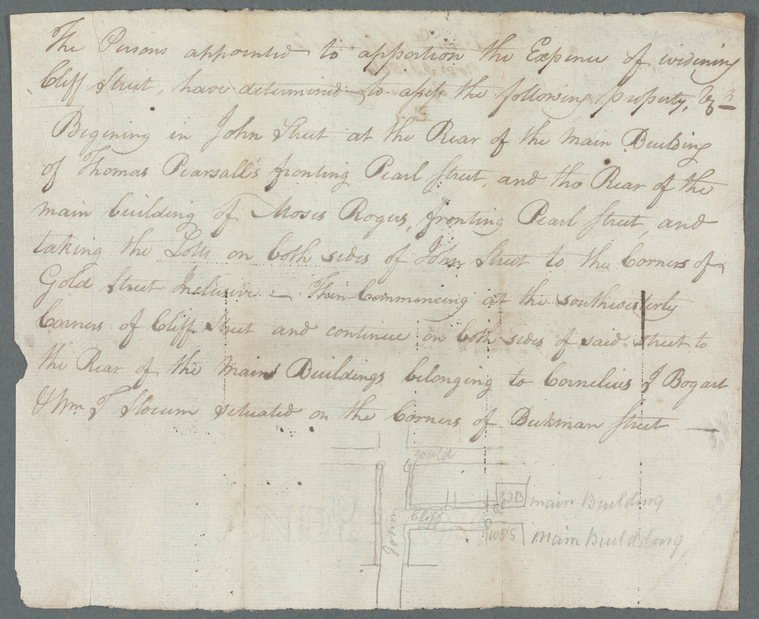 The Persons appointed to apportion the Expence of widening
Cliff Street, have determined to assess the following property, Viz
Begining in John Street at the Rear of the main Building
of Thomas Pearsall's fronting Pearl Street, and the Rear of the
main building of Moses Rogers, fronting Pearl Street, and
taking the Lotts on both sides of John Street to the Corners of
Gold Street Inclusive — Then Commencing at the southwesterly
Corners of Cliff Street and continue on both sides of said Street to
the Rear of the Main Buildings belonging to Cornelius J Bogart
& Wm T Slocum situated on the Corners of Beekman Street —
Gould
CB main Building
Cliff
John
main Buildding